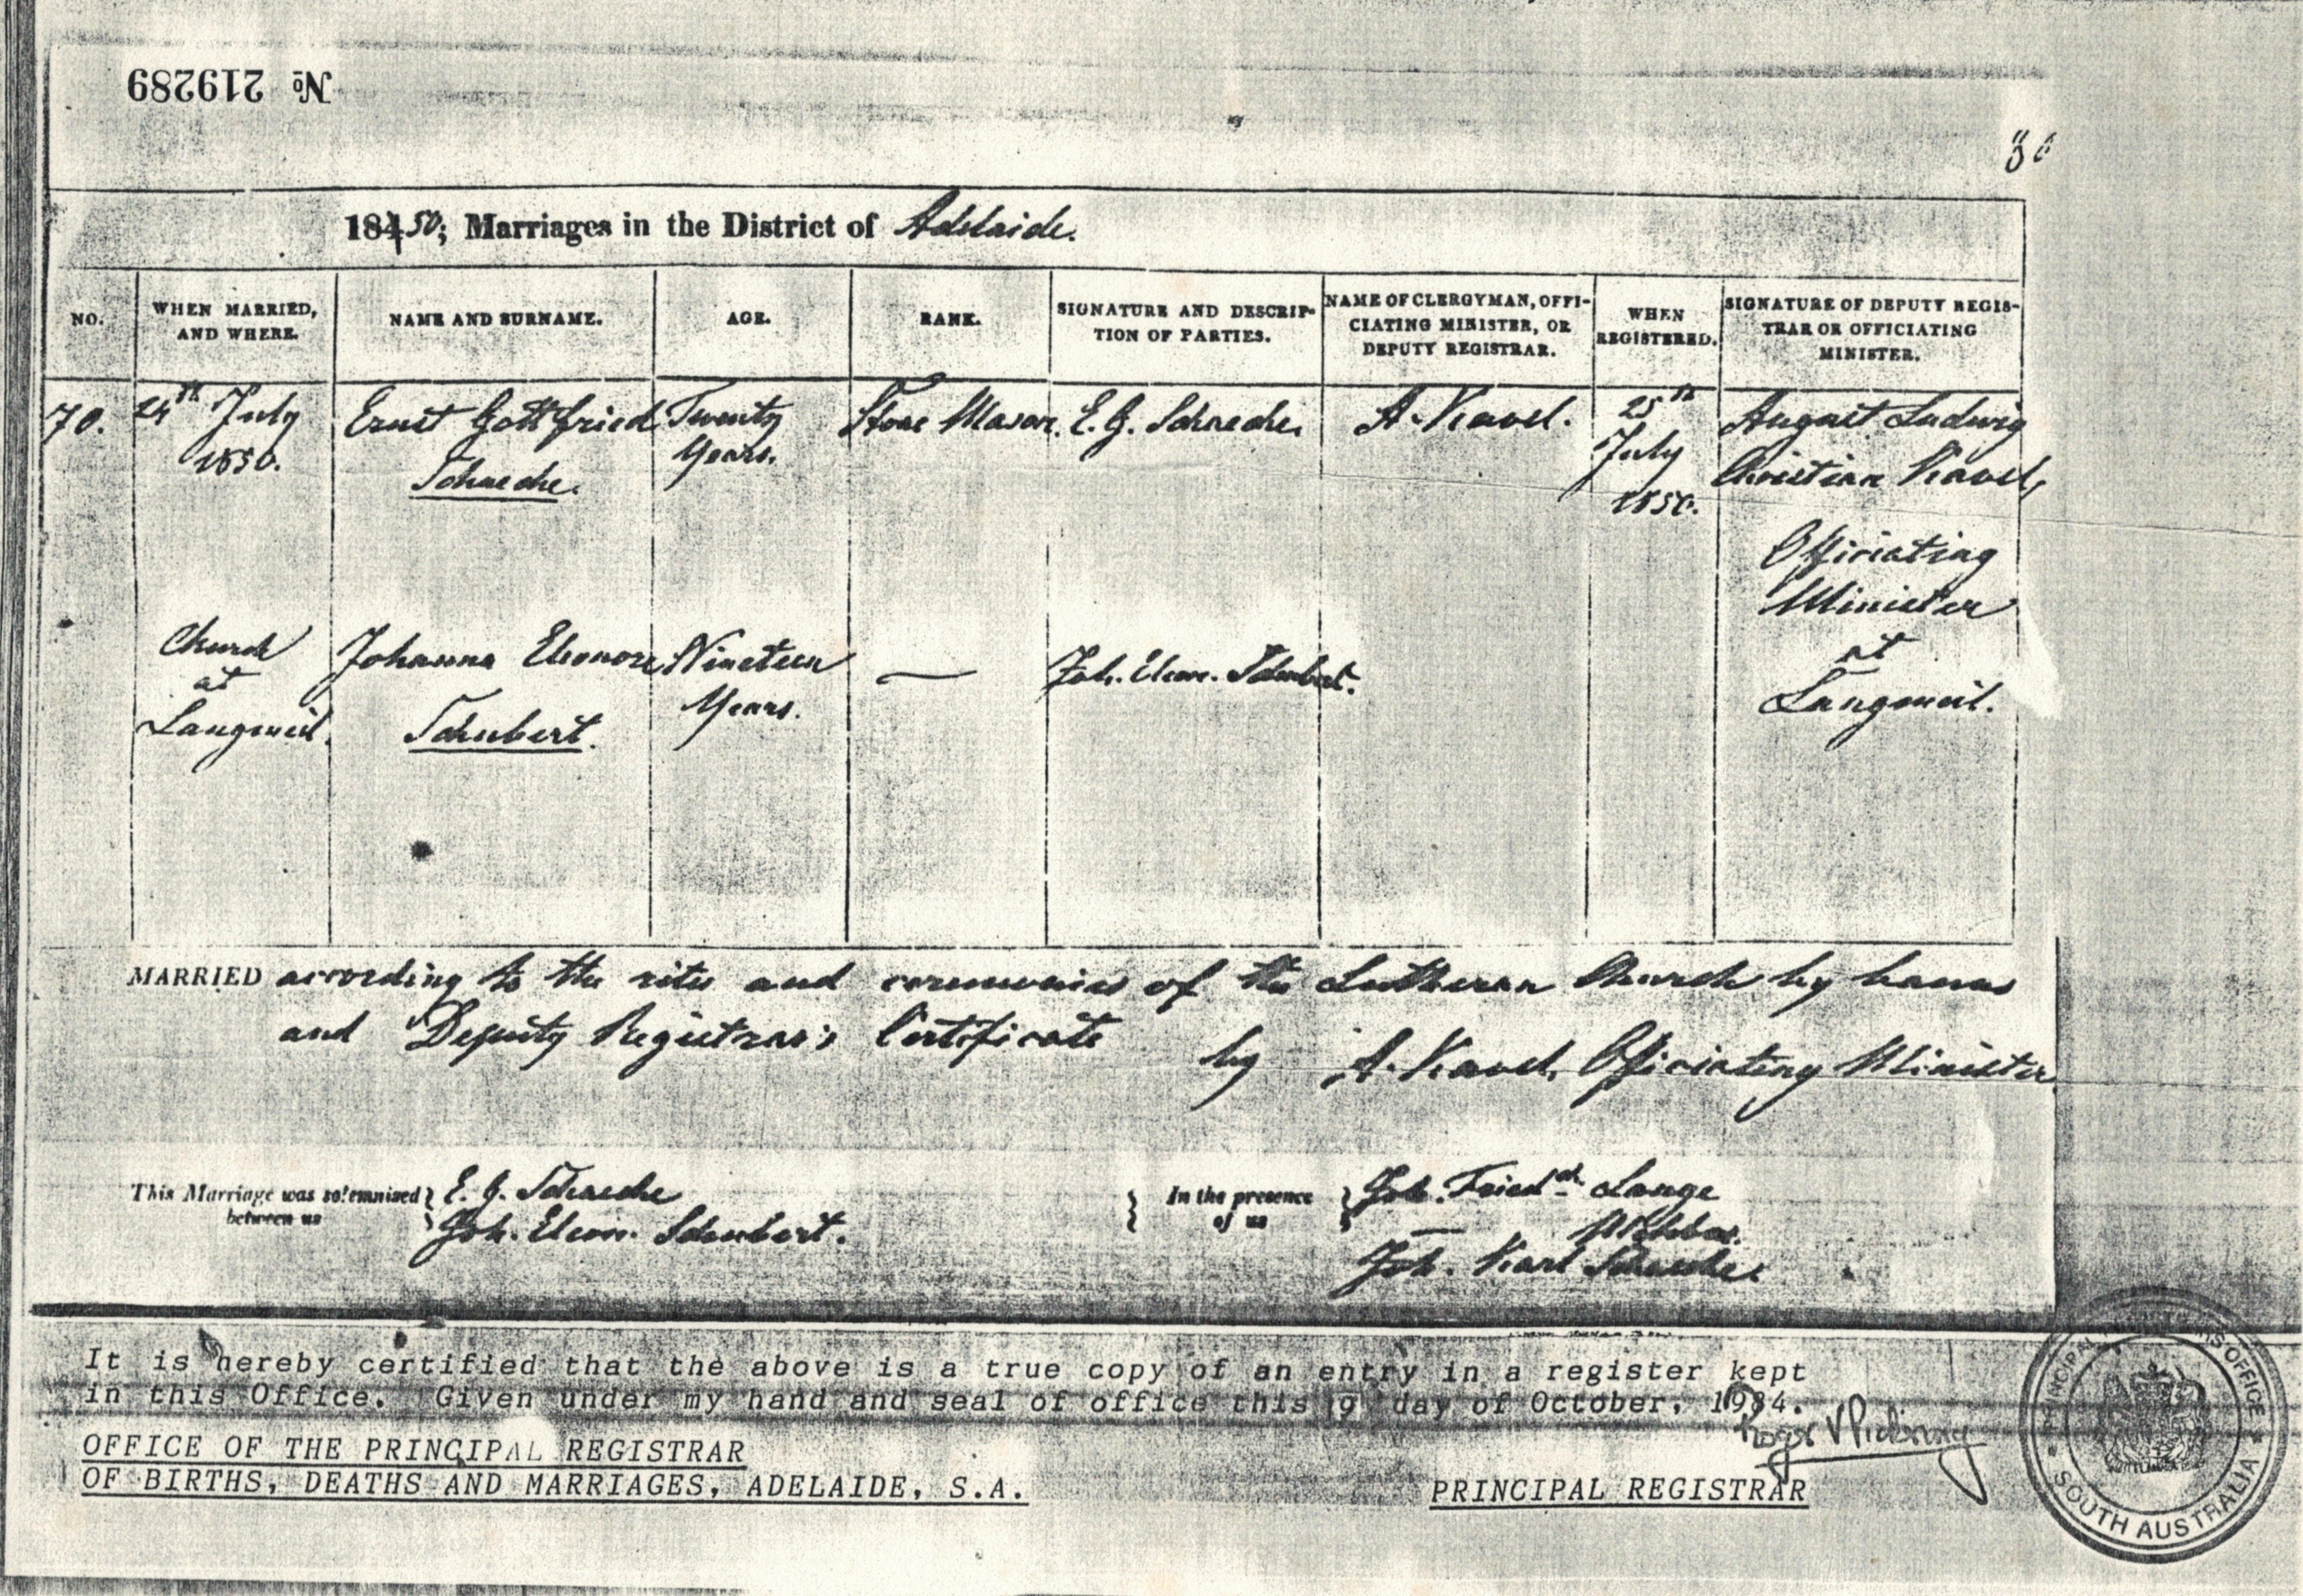 № 219289
36
18450; Marriages in the District of Adelaide.
NO.
WHEN MARRIED,
AND WHERE.
NAME AND SURNAME.
AGE.
RANK.
SIGNATURE AND DESCRIP-
TION OF PARTIES.
NAME OF CLERGYMAN, OFFI-
CIATING MINISTER, OR
DEPUTY REGISTRAR.
WHEN
REGISTERED.
SIGNATURE OF DEPUTY REGIS-
TRAR OR OFFICIATING
MINISTER.
70.
24th July
1850.
Church
at
Langmeil.
Ernst Gottfried
Schaeche.
Johanna Eleonore
Schubert.
Twenty
Years.
Nineteen
Years.
Stone Mason.
—
E. G. Schaeche.
Joh. Eleon. Schubert.
A. Kavel.
25th
July
1850.
August Ludwig
Christian Kavel,
Officiating
Minister
at
Langmeil.
MARRIED according to the rites and ceremonies of the Lutheran Church by banns
and Deputy Registrar's Certificate
by A. Kavel, Officiating Minister
This Marriage was solemnised
between us
E. G. Schaeche
Joh. Eleon. Schubert.
In the presence
of us
Joh. Friedch Lange
Joh. Karl Schaeche.
It is hereby certified that the above is a true copy of an entry in a register kept
in this Office. Given under my hand and seal of office this 9 day of October, 1984.
OFFICE OF THE PRINCIPAL REGISTRAR
OF BIRTHS, DEATHS AND MARRIAGES, ADELAIDE, S.A.
PRINCIPAL REGISTRAR
PRINCIPAL REGISTRARS OFFICE
SOUTH AUSTRALIA